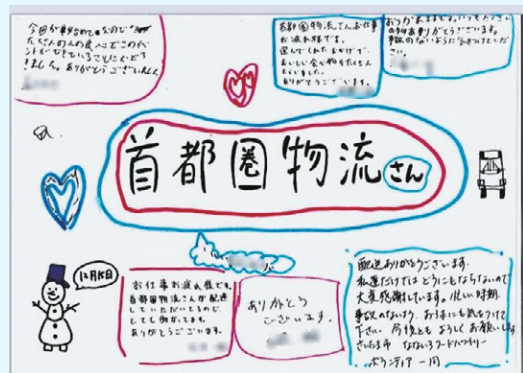 今回が初めてなのですが
たくさんの人の良心でこのイベ
ントができていることにたどり
ありがとうございました
首都圏物流さんお仕事
お疲れ様です。
運んでくれたおかげで、
おいしい食べ物をたくさん
もらいました。
ありがとうございます。
おつかれさまです。いつもたくさん
の物ありがとうございます。
事故のないように気をつけてくださ
い。
首都圏物流さん
12月15日
お仕事お疲れ様です。
首都圏物流さんが配送
していただいてるので、
とても助かってます。
ありがとうございます。
ありがとう
ございます。
配送ありがとうございます。
私達だけではどうにもならないので
大変感謝しています。忙しい時期
事故のないよう お身体にも気をつけて
下さい。今後とも よろしくお願いします
さいたま市 なないろフードパントリー
ボランティア一同